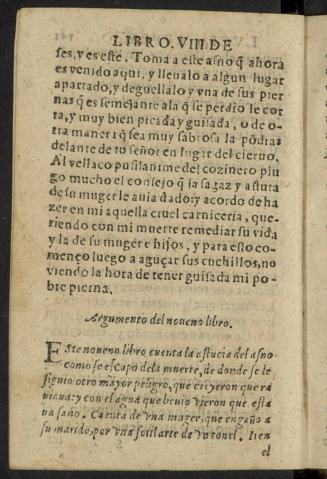 LIBRO. VIII. DE
ses, y es este. Toma a este asno q̃ ahora
es venido aqui, y lleualo a algun lugar
apartado, y deguellalo y vna de sus pier
nas q̃ es semejante ala q̃ se perdio le cor
ta, y muy bien picada y guisada, o de o-
tra manera q̃ sea muy sabrosa la põdras
delante de tu señor en lugar del cieruo.
Al vellaco pusilanime del cozinero plu
go mucho el consejo q̃ la sagaz y astuta
de su muger le auia dado: y acordo de ha
zer en mi aquella cruel carniceria, que-
riendo con mi muerte remediar su vida
y la de su muger e hijos, y para esto co-
menço luego a aguçar sus cuchillos, no
viendo la hora de tener guisada mi po-
bre pierna.
Argumento del noueno libro.
ESte noueno libro cuenta la astucia del asno
como se escapo dela muerte, de donde se le
siguio otro mayor peligro, que creyeron que ra
uiaua: y con el agua que beuio vieron que esta
ua sano. Cuenta de vna muger, que engaño a
su marido, por vna sotil arte de vn tonel. Iten
el